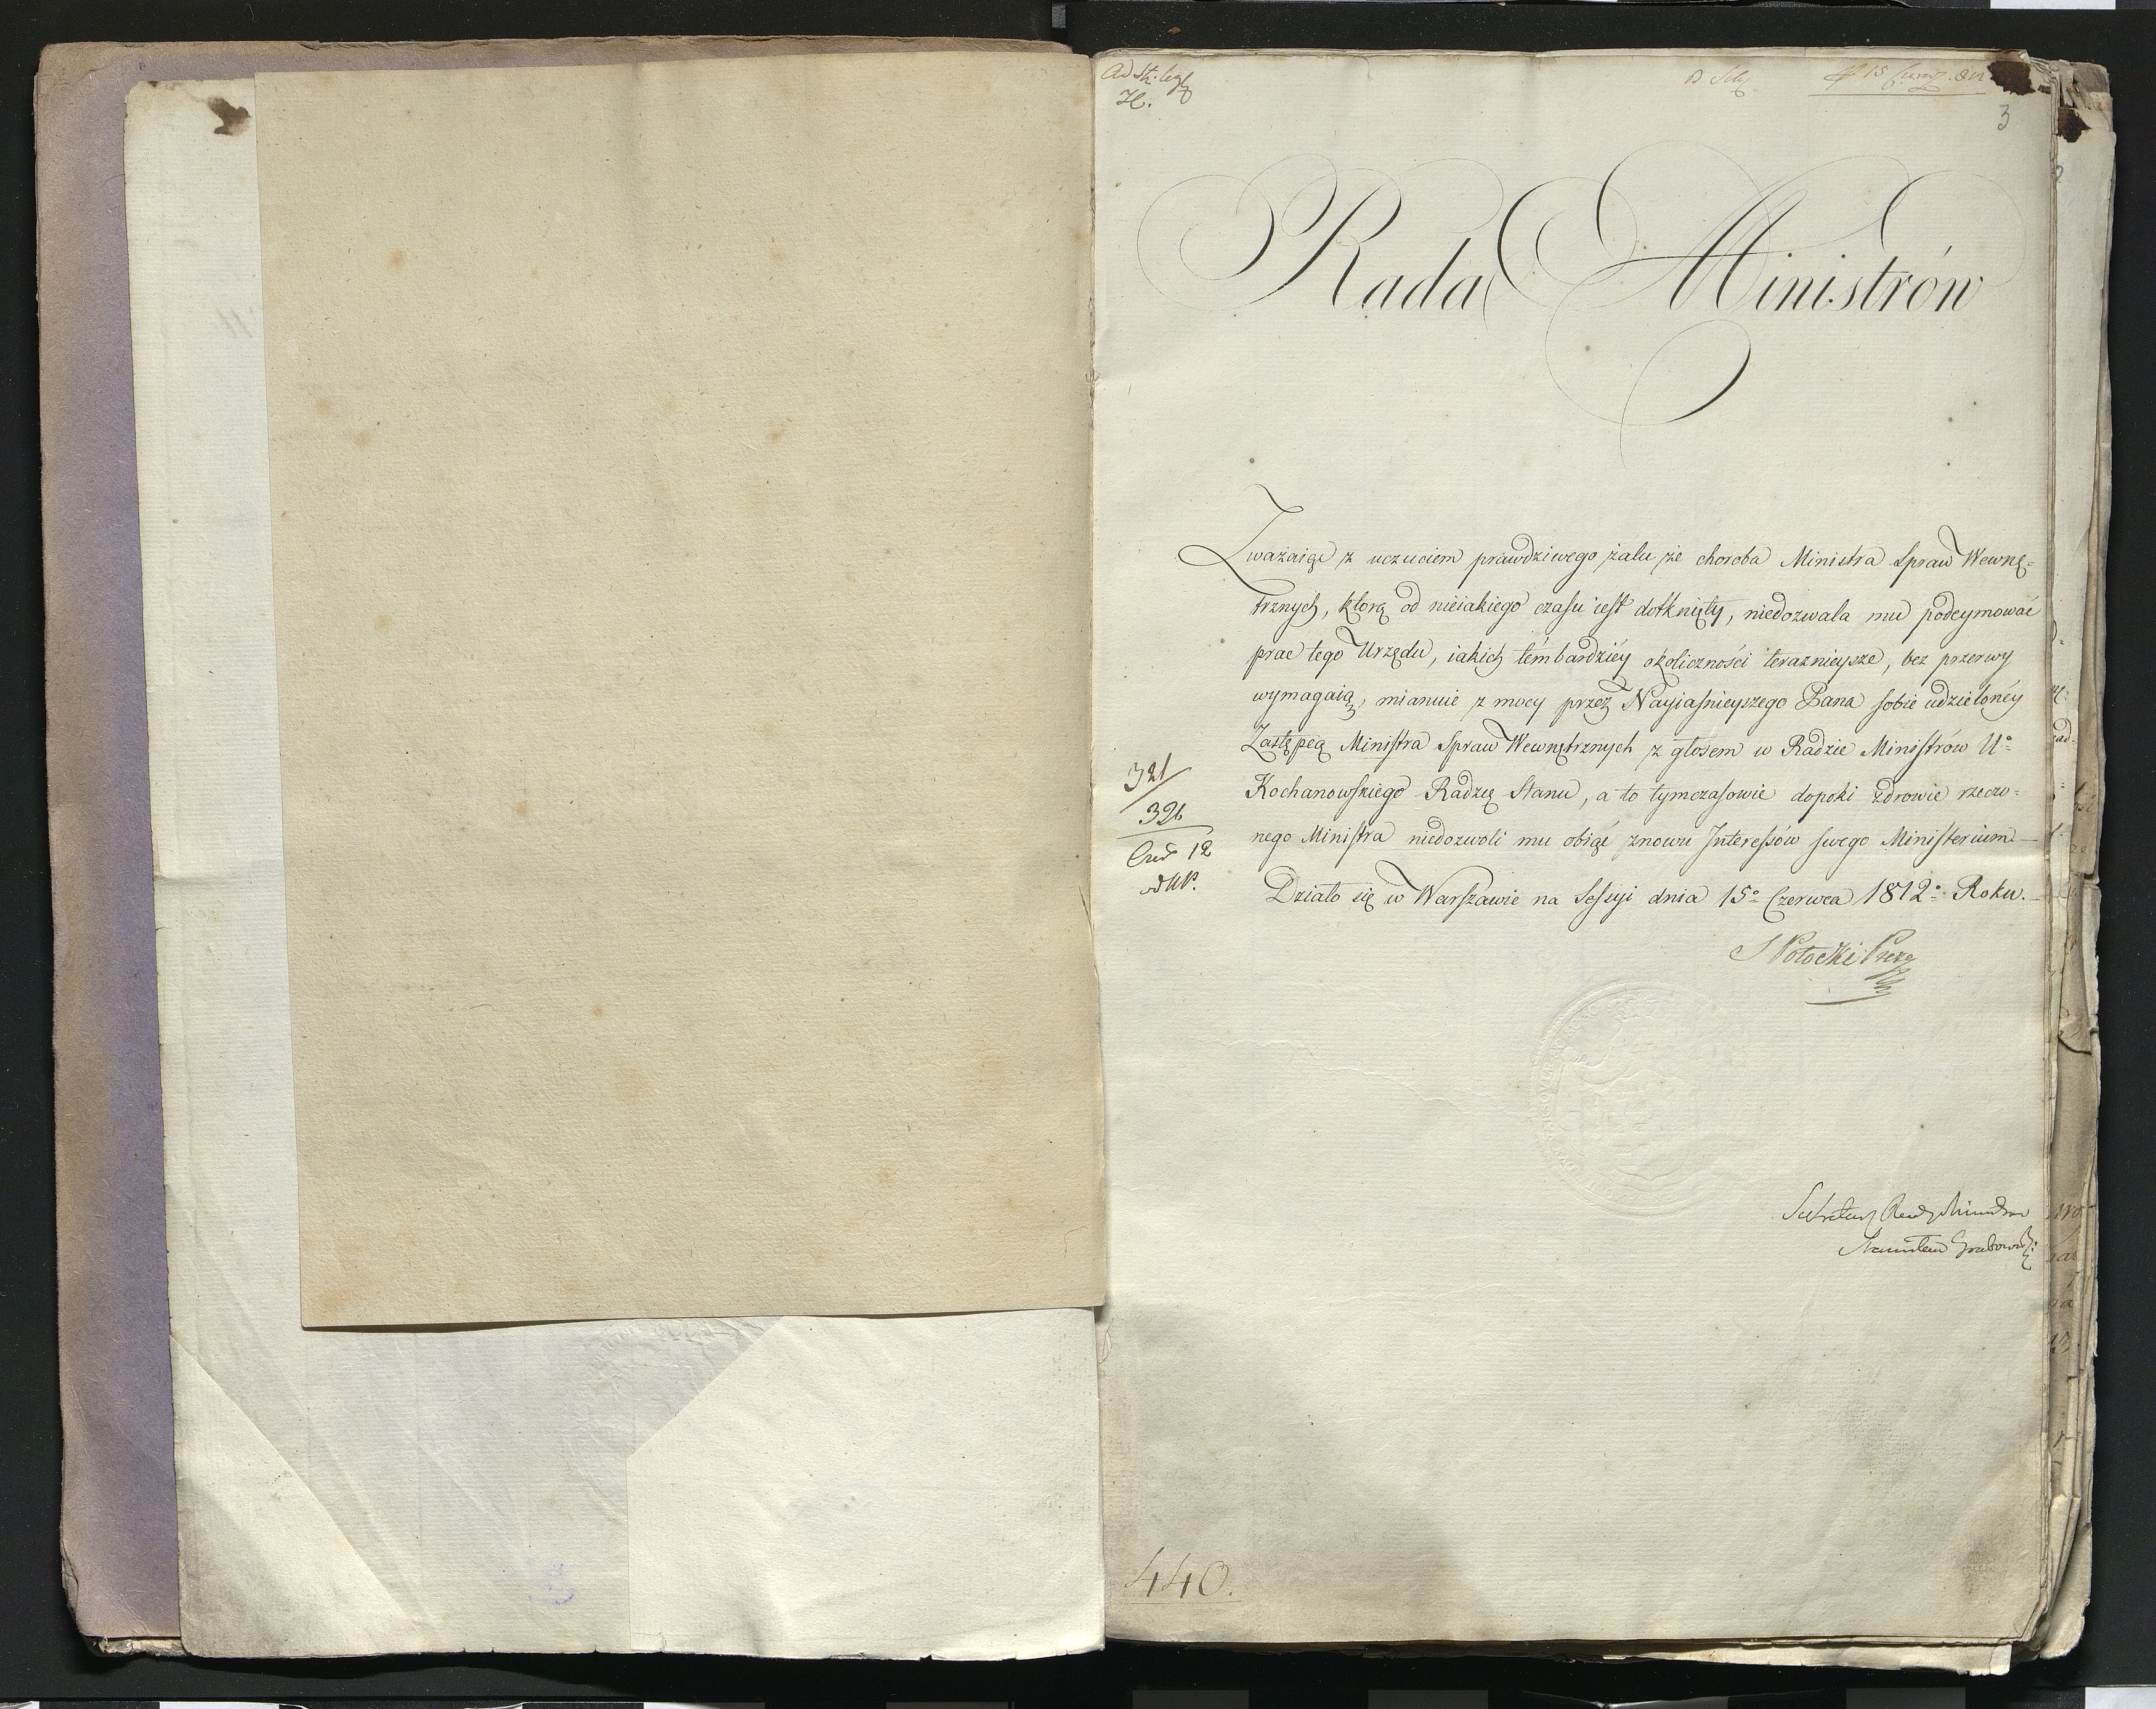 3
Rada Ministrów
Zważaiąc z uczuciem prawdziwego żalu że choroba Ministra Spraw Wewnę=
trznych, którą od nieiakiego czasu iest dotknięty, niedozwala mu podeymować
prac tego Urzędu, iakich témbardziéy okoliczności teraznieysze, bez przerwy
wymagaią, mianuie z mocy przez Nayiaśnieyszego Pana sobie udzieloney
Zastępcą Ministra Spraw Wewnętrznych z głosem w Radzie Ministrów Uo
Kochanowskiego Radzcę Stanu, a to tymczasowie dopoki zdrowie rzeczo=
nego Ministra niedozwoli mu obiąć znowu Interessów swego Ministerium.
Działo się w Warszawie na Sessyi dnia 15o Czerwca 1812o Roku.
321
326
12
S Potocki Prez
Sekretarz Rady Ministrów
Stanisław Grabowski
440.